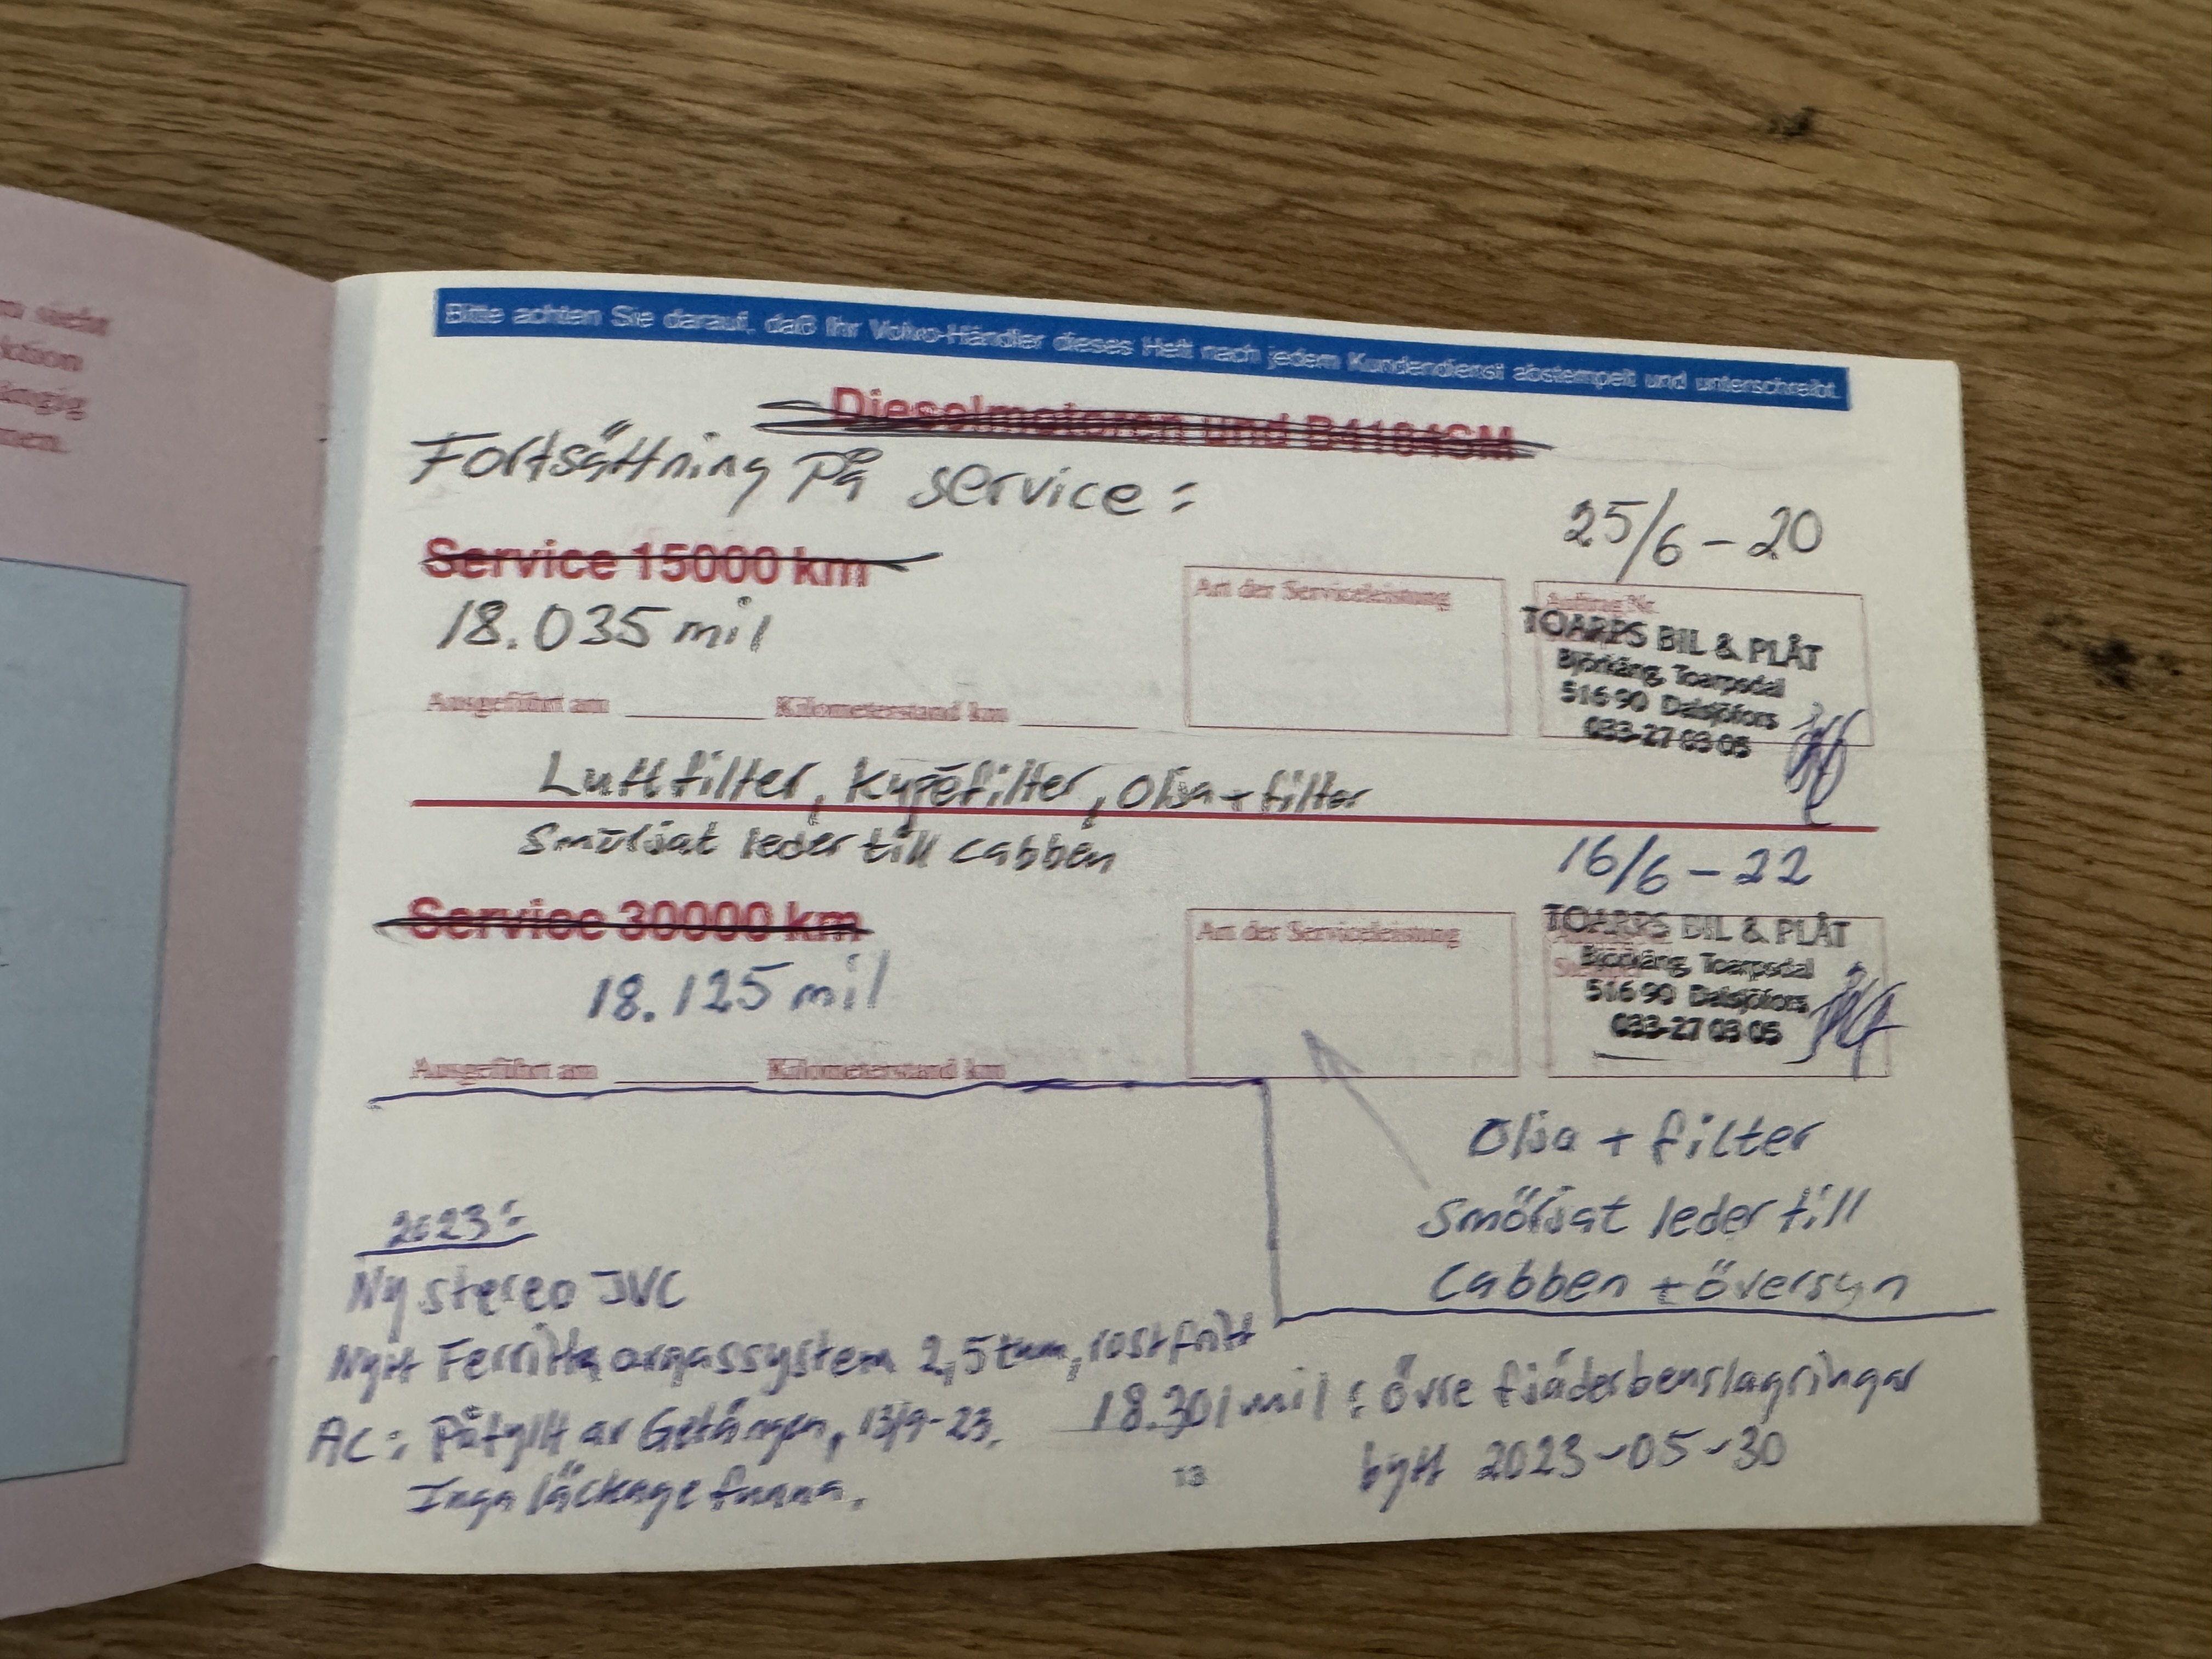 m sieht
Bitte achten Sie darauf, daß Ihr Volvo-Händler dieses Heft nach jedem Kundendienst abstempelt und unterschreibt.
Dieselmotoren und B4184SM
Fortsättning på service:
25/6-20
Service 15000 km
Art der Serviceleistung
Auftrag Nr.
18.035 mil
TOARPS BIL & PLÅT
Björkäng, Toarpsdal
516 90 Dalsjöfors
033-27 03 05
Ausgeführt am Kilometerstand km
Luftfilter, Kupéfilter, Olja + filter
Smörjat leder till cabben
16/6-22
Service 30000 km
Art der Serviceleistung
18.125 mil
TOARPS BIL & PLÅT
Björkäng, Toarpsdal
516 90 Dalsjöfors
033-27 03 05
Ausgeführt am Kilometerstand km
Olja + filter
Smörjat leder till
Cabben + översyn
2023:
Ny stereo JVC
Nytt Ferritta avgassystem 2,5 tum, rostfritt
18.301 mil: övre fjäderbenslagringar
bytt 2023-05-30
AC: Påfyllt av Getängen, 13/9-23.
Inga läckage funna.
13